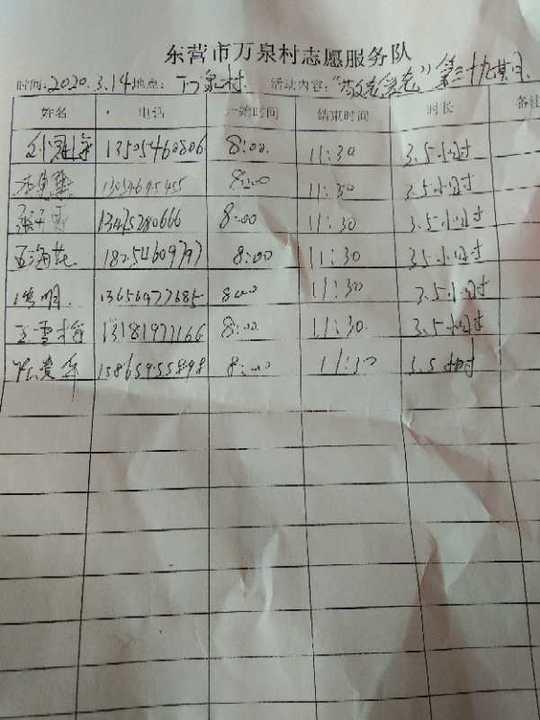 东营市万泉村志愿服务队
时间:2020.3.14 地点: 万泉村 活动内容: 第三十九期
姓名 电话 开始时间 结束时间 时长 备注
13505460806 8:00 11:30 3.5小时
8:00 11:30 3.5小时
13425280666 8:00 11:30 3.5小时
王海花 18254609797 8:00 11:30 3.5小时
13656477685 8:00 11:30 3.5小时
13181977166 8:00 11:30 3.5小时
15865955898 8:00 11:30 3.5小时